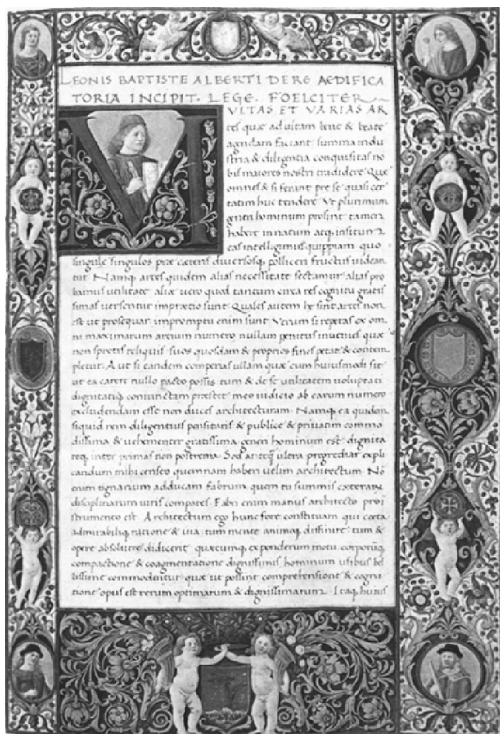 LEONIS BAPTISTE ALBERTI DE RE AEDIFICA
TORIA INCIPIT. LEGE. FOELCITER
VLTAS ET VARIAS AR
tes quæ ad uitam bene & beate
agendam faciant summa indu
stria & diligentia conquisitas no
bis maiores nostri tradidere. Quæ
omnes & si ferant pre se quasi cer
tatim huc tendere Vt plurimum
generi hominum prosint tamen
habere innatum atq; insitum
eas intelligimus quippiam quo
singule singulos præ cæteris diuersosq; polliceri fructus uidean
tur. Namq; artes quidem alias necessitate sectamur alias pro
bamus utilitate aliæ uero quod tantum circa res cognitu gratis
simas uersentur in præcio sunt. Quales autem he sint artes non
est ut prosequar in promptu enim sunt. Verum si repetas ex om
ni maximarum artium numero nullam penitus inuenies quæ
non spretis reliquis suos quosdam & proprios fines petat & contem
pletur. Aut si tandem comperias ullam quæ cum huiusmodi sit
ut ea carere nullo pacto possis tum & de se utilitatem uoluptati
dignitatiq; coniunctam præstet meo iudicio ab earum numero
excludendam esse non duces architecturam. Namq; ea quidem
siquid rem diligentius pensitaris & publice & priuatim commo
dissima & uehementer gratissima generi hominum est dignita
teq; inter primas non postrema. Sed anteq; ultra progrediar expli
candum mihi censeo quemnam haberi uelim architectum. Nō
enim tignarium adducam fabrum quem tu summis cæterarum
disciplinarum uiris compares. Fabri enim manus architecto pro i
strumento est. Architectum ego hunc fore constituam qui certa
admirabiliq; ratione & uia tum mente animoq; diffinire tum &
opere absoluere didicerit quæcunq; ex ponderum motu corporūq;
compactione & coagmentatione dignissimis hominum usibus bel
lissime commodentur quæ ut possint comprehensione & cogni
tione opus est rerum optimarum & dignissimarum. Itaq; huius